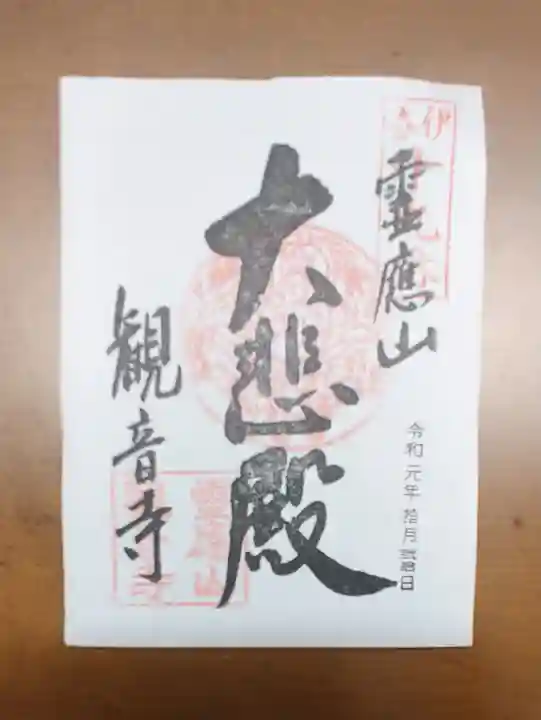 伊
靈應山
大悲殿
観音寺
令和元年拾月
日
靈應山